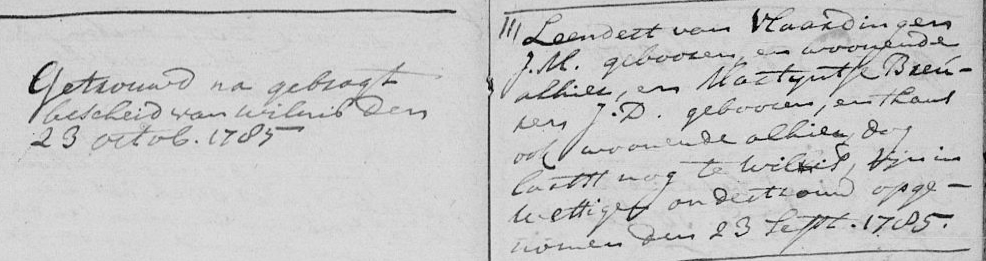 Getrouwd na gebragt
bescheid van Wilnis den
23 octob. 1785
111 Leendert van Vlaardingen
J.M. gebooren, en woonende
alhier, en Martyntje Breu-
kers J.D. gebooren, en thans
ook woonende alhier, dog
laatst nog te Wilnis, Zijn in
Wettigen ondertrouw opge-
nomen den 23 Sept. 1785.